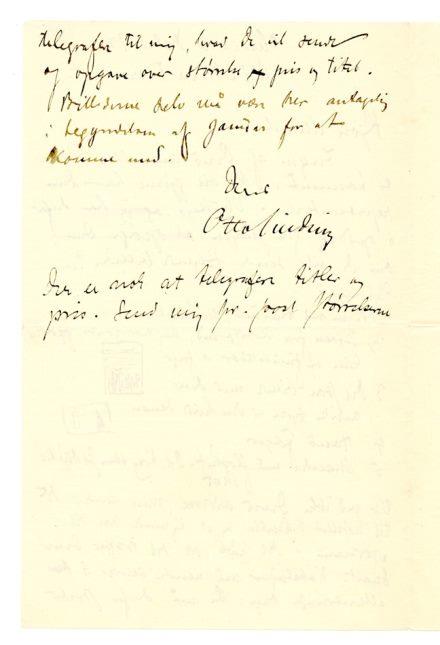 telegrafere til mig, hvad De vil sende
og opgave over størrelse og pris og titel.
Billederne selv må være her antagelig
i begyndelsen af Januar for at
komme med.
Deres
Otto Sinding
Det er nok at telegrafere titler og
pris. Send mig pr. post størrelserne